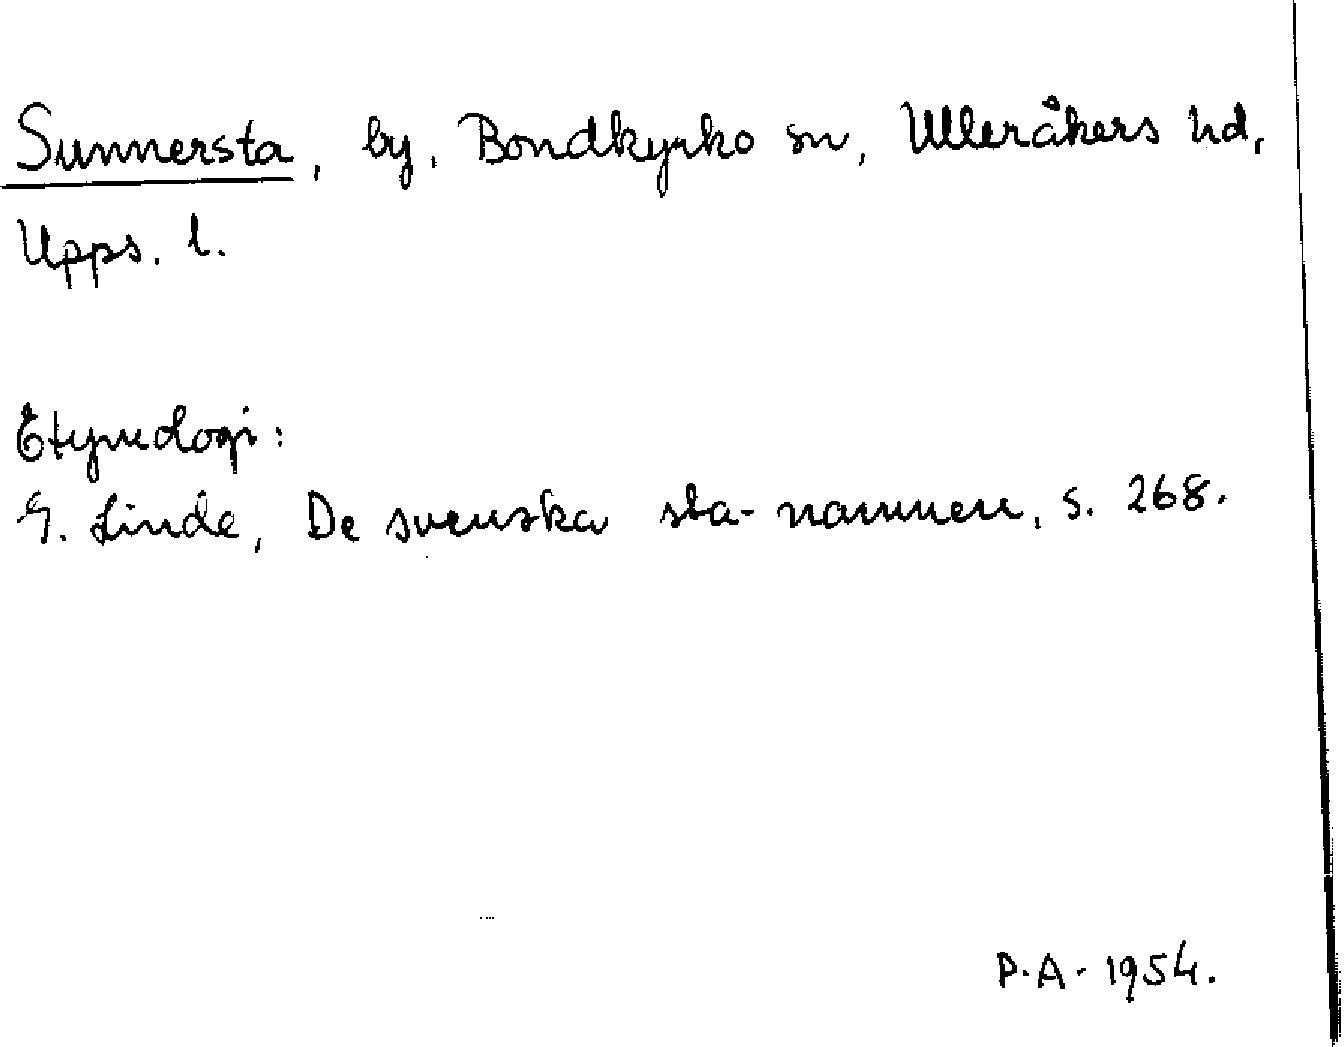 Sunnersta, by, Bondkyrko sn, Ulleråkers hd,
Upps. l.
Etymologi:
G. Linde, De svenska sta-namnen, s. 268.
P.A. 1954.